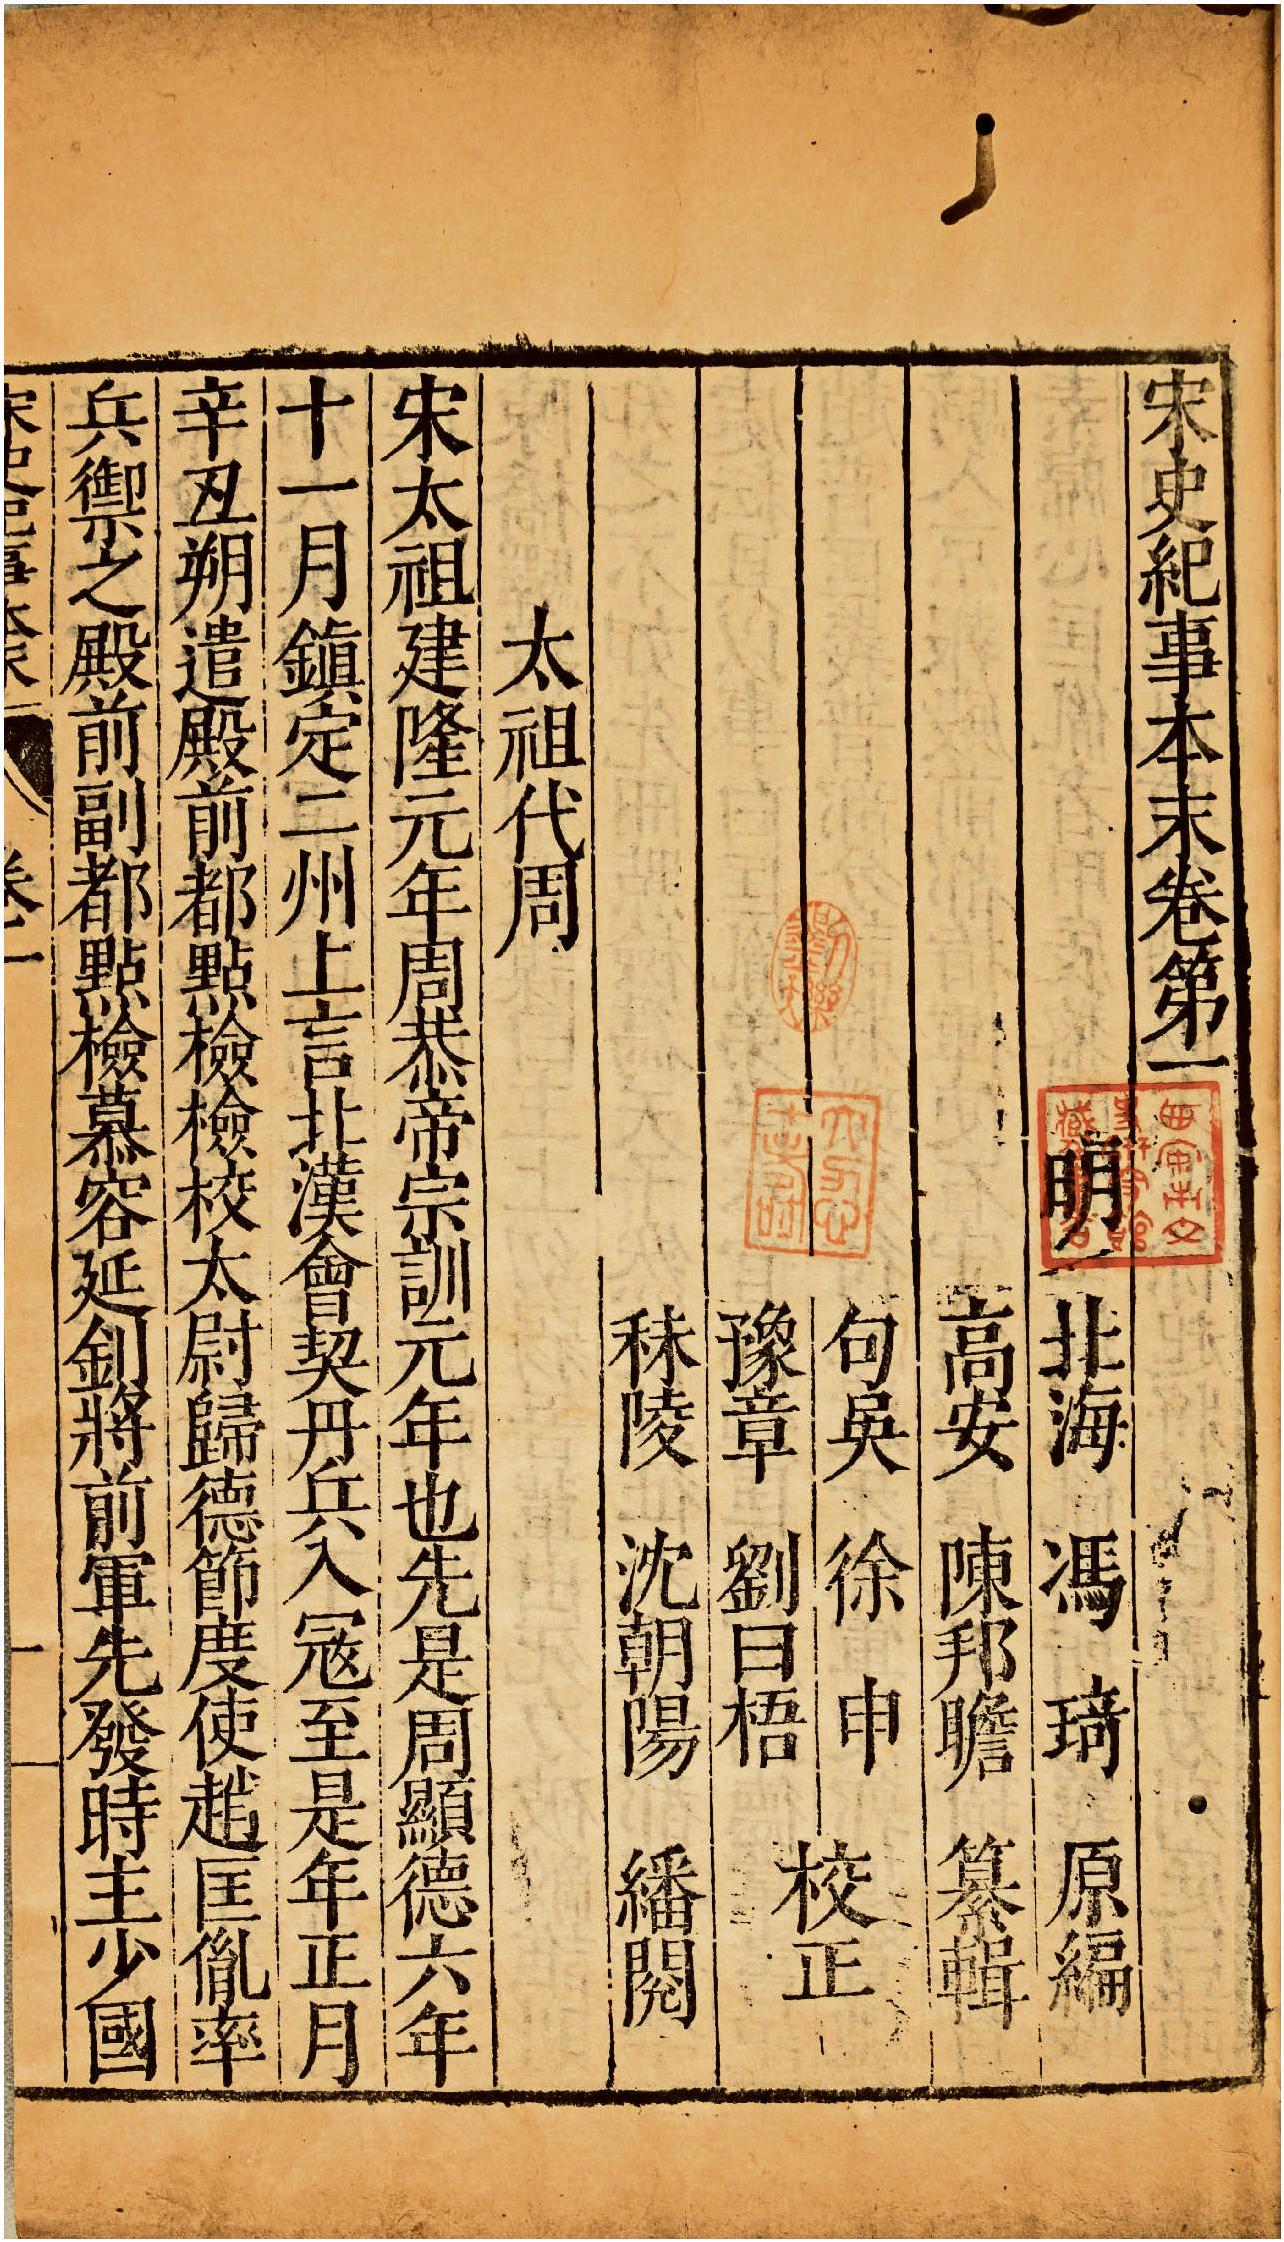 宋史紀事本末卷第一
明 北海 馮琦 原編
高安 陳邦瞻 纂輯
句吳 徐申
豫章 劉曰梧 校正
秣陵 沈朝陽 繙閱
太祖代周
宋太祖建隆元年周恭帝宗訓元年也先是周顯德六年
十一月鎮定二州上言北漢會契丹兵入冦至是年正月
辛丑朔遣殿前都點檢檢校太尉歸德節度使趙匡胤率
兵禦之殿前副都點檢慕容延釗將前軍先發時主少國
宋史紀事本末 卷一 一